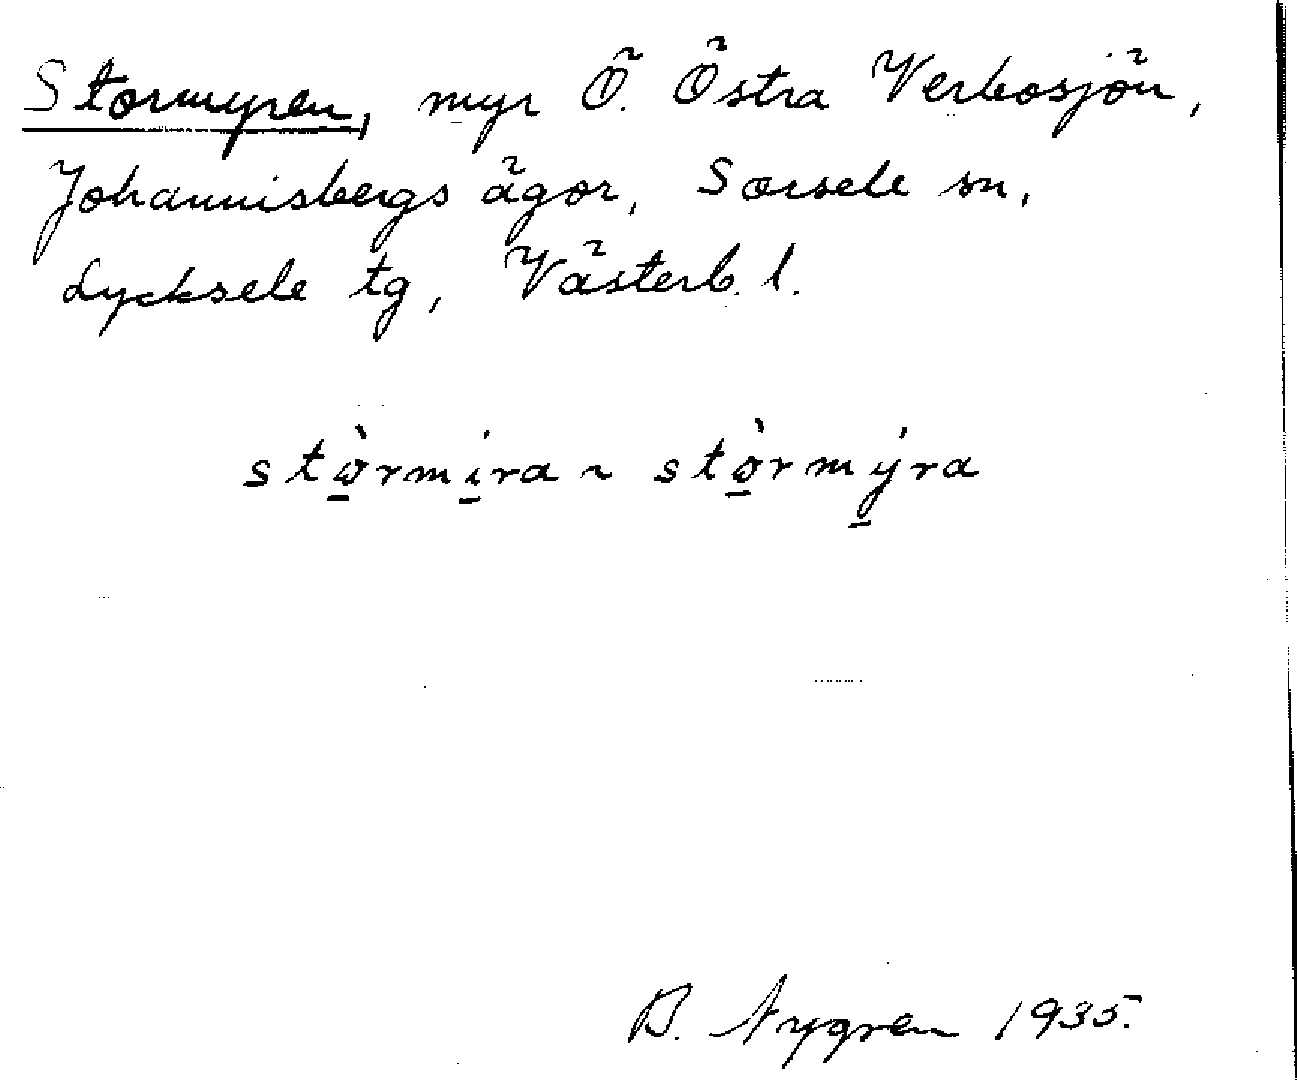 Stormyren, myr Ö. Östra Verbosjön,
Johannisbergs ägor, Sorsele sn,
Lycksele tg, Västerb. l.
stò̱rmí̱ra ~ stò̱rmý̱ra
B. Nygren 1935.